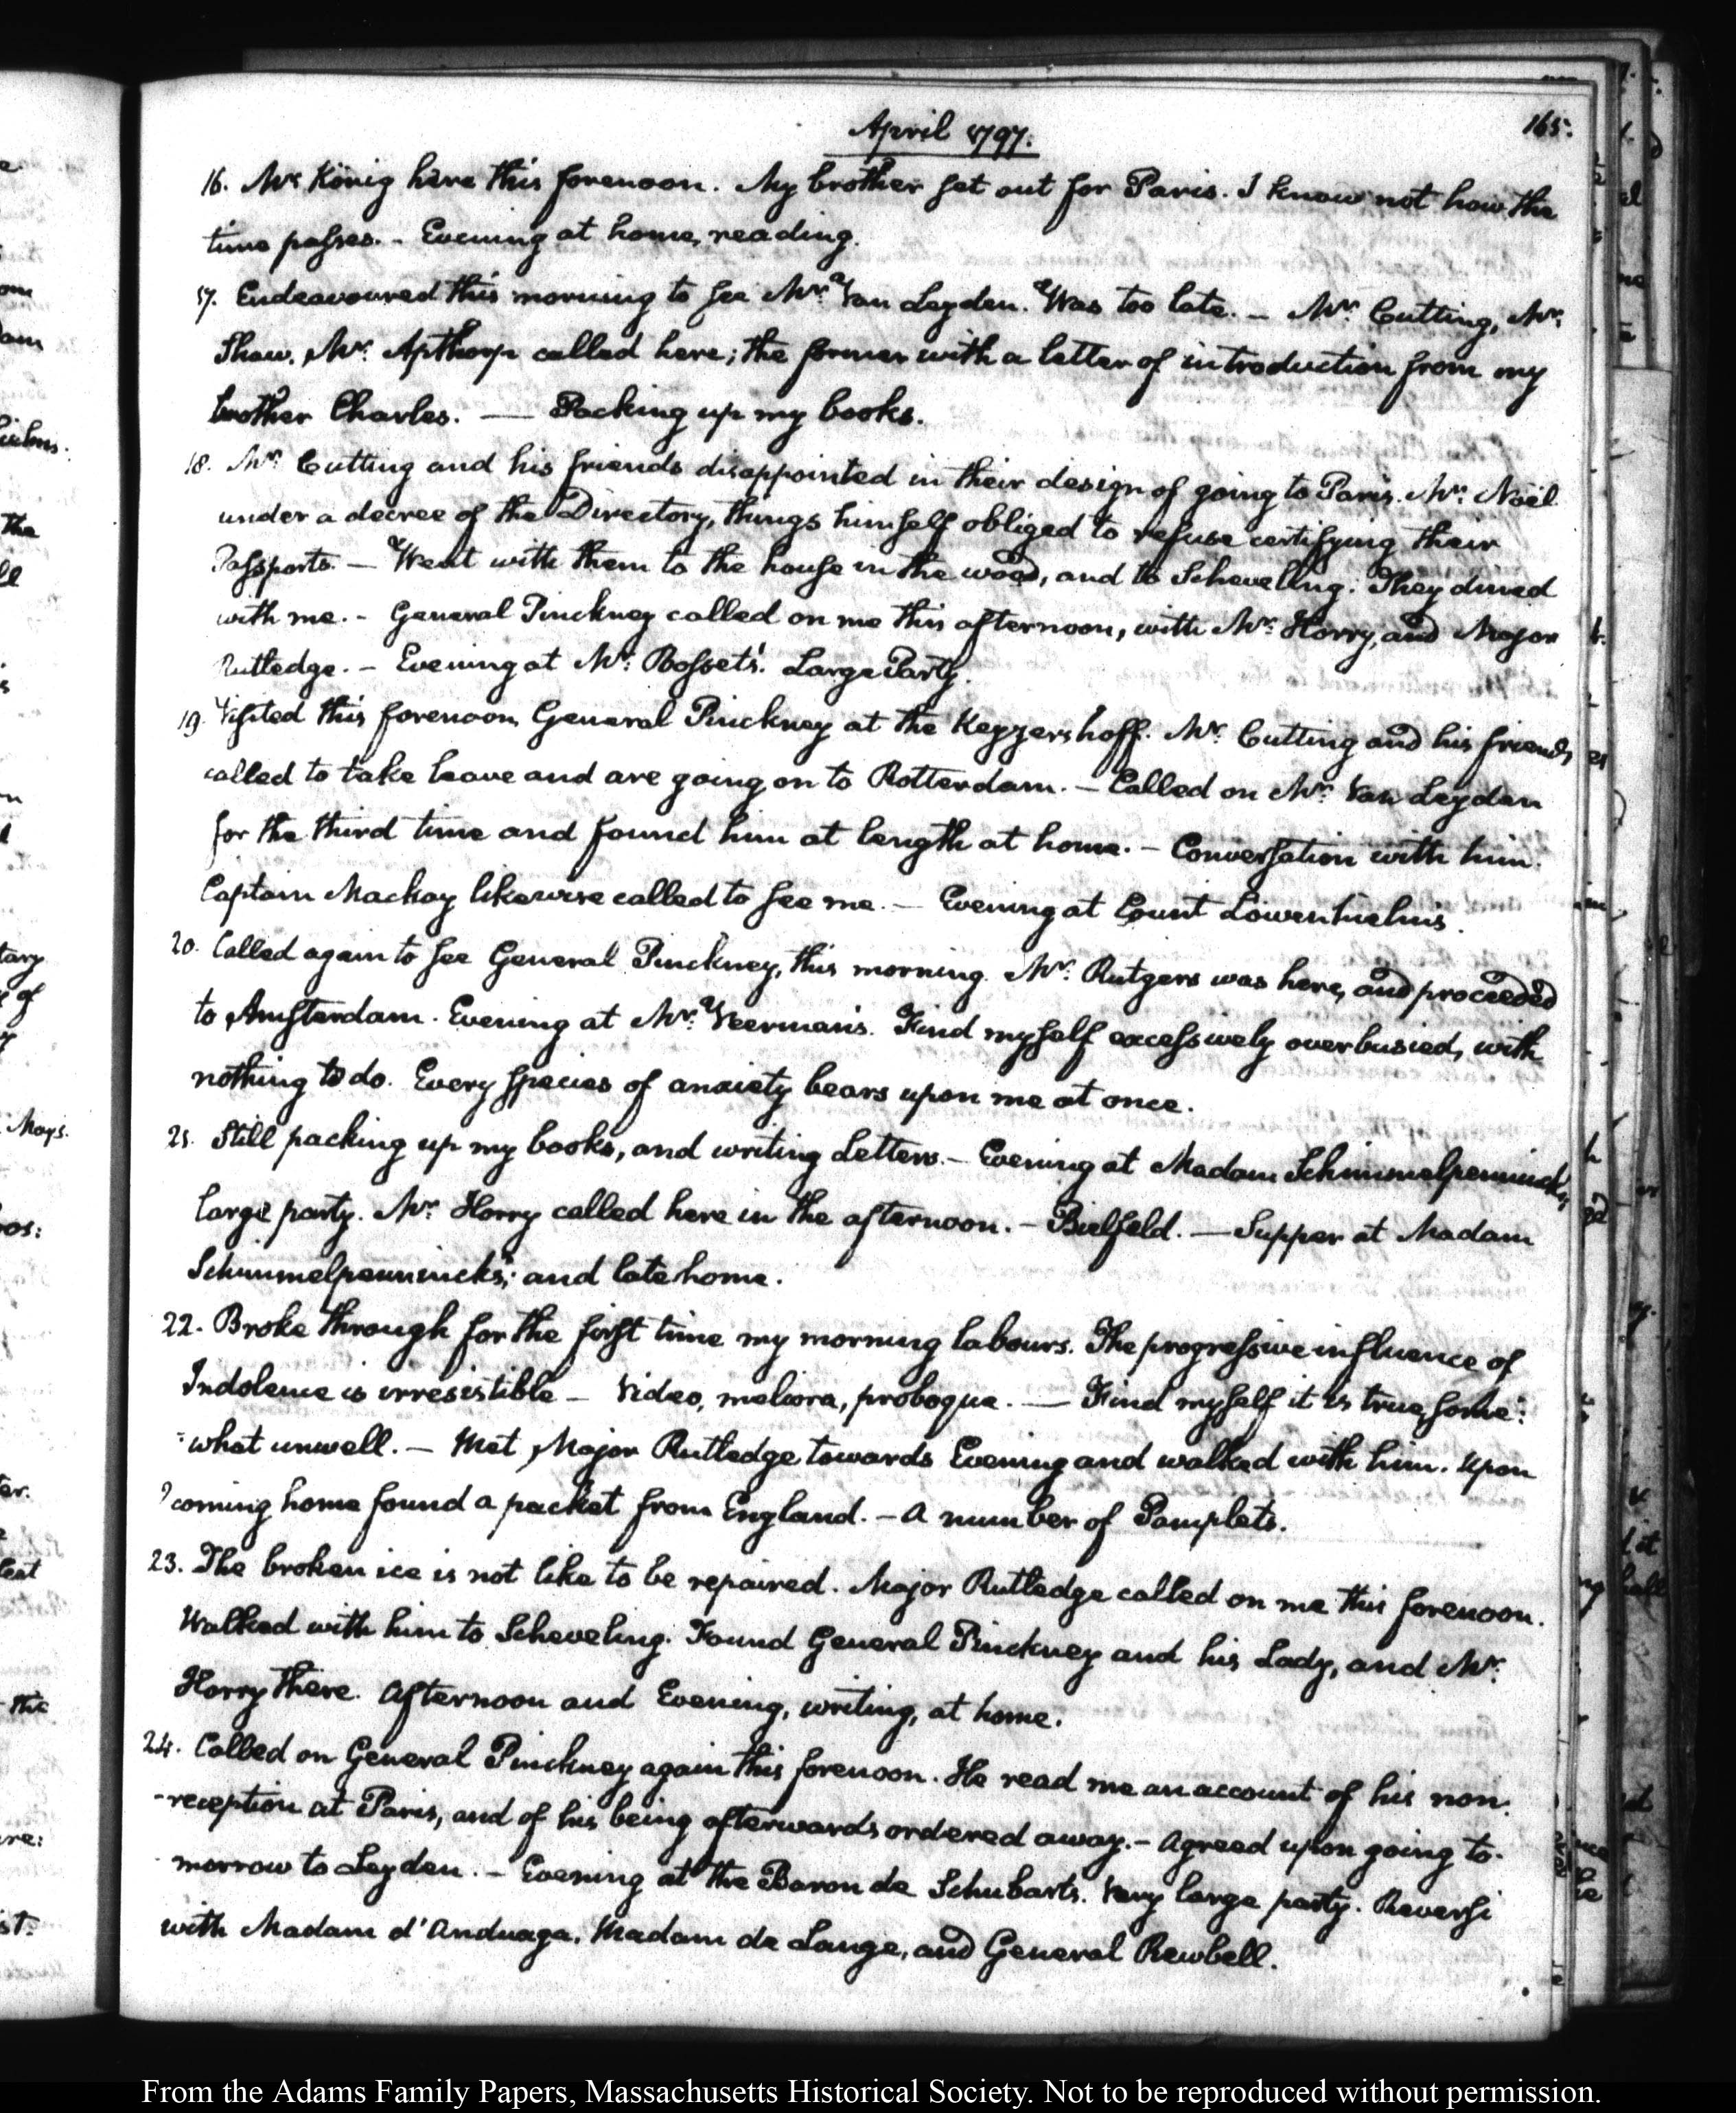 April 1797.
165.
16. Mr. König here this forenoon. My brother set out for Paris. I know not how the
time passes. - Evening at home, reading.
17. Endeavoured this morning to see Mr. Van Leyden. Was too late. - Mr. Cutting, Mr.
Shaw, Mr. Apthorp called here; the former with a letter of introduction from my
brother Charles. — Packing up my books.
18. Mr. Cutting and his friends disappointed in their design of going to Paris. Mr. Noël
under a decree of the Directory, things himself obliged to refuse certifying their
Passports. — Went with them to the house in the wood, and to Scheveling. They dined
with me. - General Pinckney called on me this afternoon, with Mr. Horry, and Major
Rutledge. - Evening at Mr. Bosset's. Large Party.
19. Visited this forenoon General Pinckney at the Keyzershoff. Mr. Cutting and his friends
called to take leave and are going on to Rotterdam. - Called on Mr. Van Leyden
for the third time and found him at length at home. - Conversation with him.
Captain Mackay likewise called to see me. — Evening at Count Löwenhielm's.
20. Called again to see General Pinckney, this morning. Mr. Rutgers was here, and proceeded
to Amsterdam. Evening at Mr. Veerman's. Find myself excessively overbusied, with
nothing to do. Every species of anxiety bears upon me at once.
21. Still packing up my books, and writing Letters. - Evening at Madam Schimmelpenninck's,
large party. Mr. Horry called here in the afternoon. - Bielfeld. — Supper at Madam
Schimmelpenninck's; and late home.
22. Broke through for the first time my morning labours. The progressive influence of
Indolence is irresistible - Video, meliora, proboque. — Find myself it is true, some-
-what unwell. — Met Major Rutledge towards Evening and walked with him. Upon
coming home found a packet from England. - A number of Pamplets.
23. The broken ice is not like to be repaired. Major Rutledge called on me this forenoon.
Walked with him to Scheveling. Found General Pinckney and his Lady, and Mr.
Horry there. Afternoon and Evening, writing, at home.
24. Called on General Pinckney again this forenoon. He read me an account of his non-
-reception at Paris, and of his being afterwards ordered away. - Agreed upon going to-
-morrow to Leyden. - Evening at the Baron de Schubarts. Very large party. Reversi
with Madam d'Anduaga, Madam de Lange, and General Rewbell.
From the Adams Family Papers, Massachusetts Historical Society. Not to be reproduced without permission.